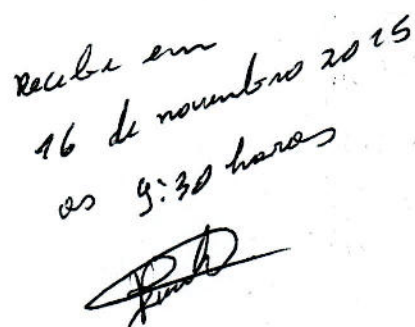 Recebi em
16 de novembro 2015
as 9:30 horas